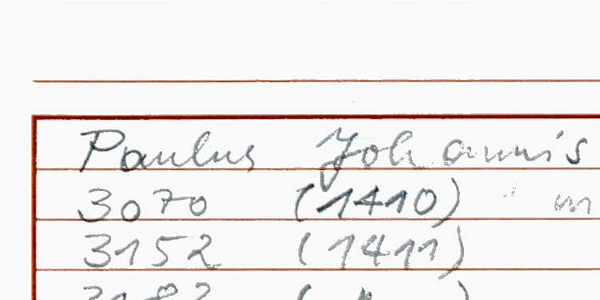 Paulus Johannis
3070 (1410) m
3152 (1411)
3182 (